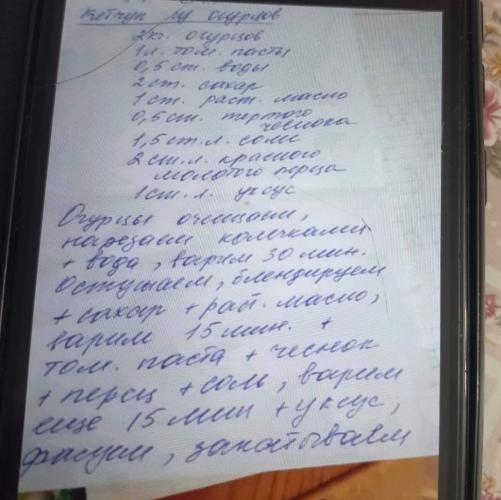 Кетчуп из огурцов
2кг. огурцов
1л. том. пасты
0,5 ст. воды
2 ст. сахар
1 ст. раст. масло
0,5 ст. тертого
чеснока
1,5 ст. л. соли
2 ст. л. красного
молотого перца
1 ст. л. уксус
Огурцы очищаем,
нарезаем колечками
+ вода, варим 30 мин.
Остужаем, блендируем
+ сахар + раст. масло,
варим 15 мин. +
том. паста + чеснок
+ перец + соль, варим
еще 15 мин + уксус,
фасуем, закатываем